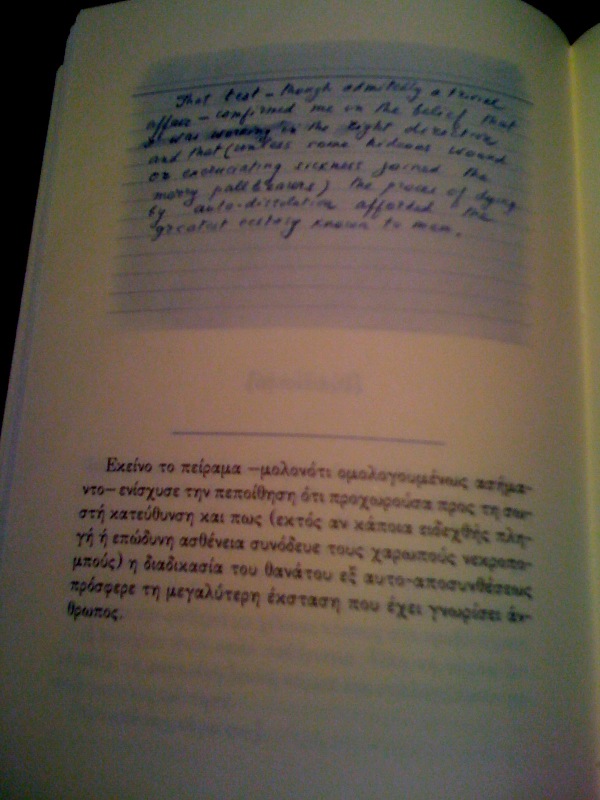 That test – though admittedly a trivial
affair – confirmed me in the belief that
I was working in the right direction
and that (unless some hideous wound
or excruciating sickness joined the
merry pallbearers) the process of dying
by auto-dissolution afforded the
greatest ecstasy known to man.
Εκείνο το πείραμα –μολονότι ομολογουμένως ασήμα-
ντο– ενίσχυσε την πεποίθηση ότι προχωρούσα προς τη σω-
στή κατεύθυνση και πως (εκτός αν κάποια ειδεχθής πλη-
γή ή επώδυνη ασθένεια συνόδευε τους χαρωπούς νεκροπο-
μπούς) η διαδικασία του θανάτου εξ αυτο-αποσυνθέσεως
πρόσφερε τη μεγαλύτερη έκσταση που έχει γνωρίσει άν-
θρωπος.